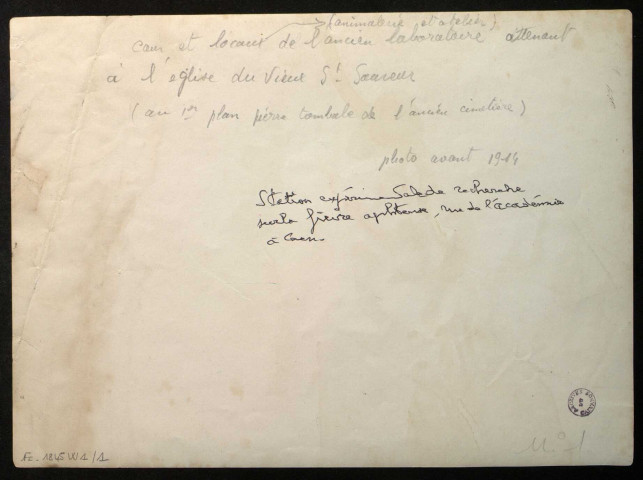 (animalerie et atelier)
cour et locaux de l'ancien laboratoire attenant
à l'église du Vieux St Sauveur
(au 1er plan pierre tombale de l'ancien cimetière)
photo avant 1914
Station expérimentale de recherche
sur la fièvre aphteuse, rue de l'académie
à Caen.
N°1